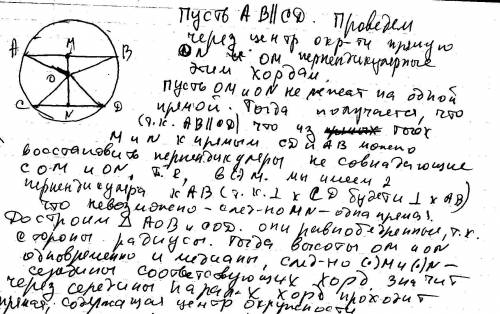 Пусть AB∥CD. Проведем
через центр окр-ти прямую
ON и OM перпендикулярные
этим хордам.
Пусть OM и ON не лежат на одной
прямой. Тогда получается, что
(т.к. AB∥CD) что из точек
M и N к прямым CD и AB можно
восстановить перпендикуляры не совпадающие
с OM и ON, т.е. в (·)M. мы имеем 2
перпендикуляра к AB (т.к. ⊥ к CD будет и ⊥ к AB)
что невозможно – след-но MN – одна прямая.
Достроим △ AOB и COD. они равнобедренные, т.к.
стороны радиусы. Тогда высоты OM и ON
одновременно и медианы, след-но (·)M и (·)N –
середины соответствующих хорд, значит
через середины парал-х хорд проходит
прямая, содержащая центр окружности
A
M
B
O
C
N
D